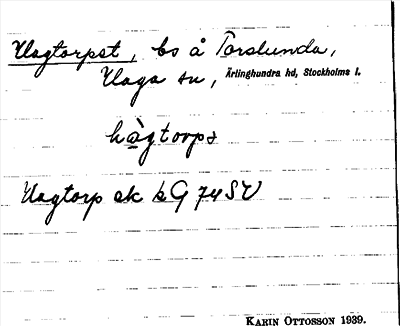 Hagtorpst, bs å Torslunda,
Haga sn, Ärlinghundra hd, Stockholms l.
hàgtorps
Hagtorp ek bG 74SV
KARIN OTTOSSON 1939.